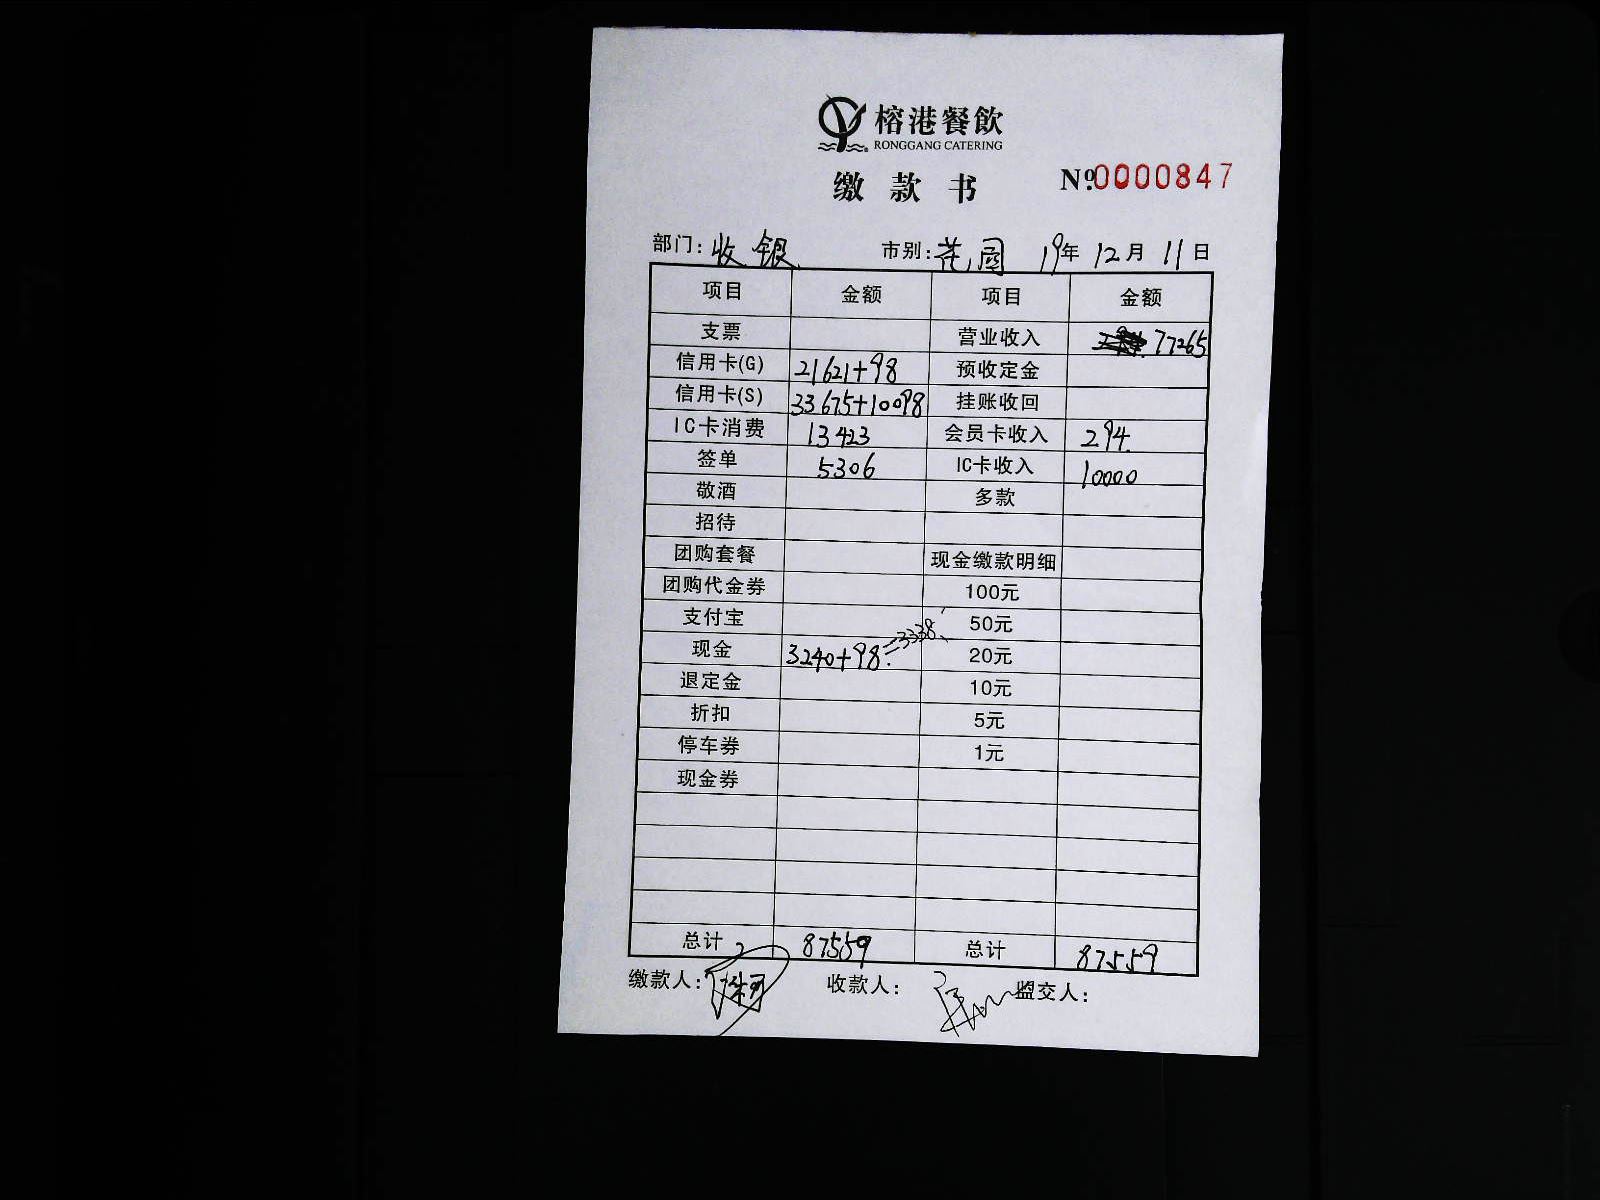 榕港餐飲
RONGGANG CATERING
缴款书 №0000847
部门：收银 市别：花园 19年12月11日
项目 金额 项目 金额
支票 营业收入 77265
信用卡(G) 21621+98 预收定金
信用卡(S) 33675+10098 挂账收回
IC卡消费 13423 会员卡收入 294.
签单 5306 IC卡收入 10000
敬酒 多款
招待
团购套餐 现金缴款明细
团购代金券 100元
支付宝 50元
现金 3240+98.=3338. 20元
退定金 10元
折扣 5元
停车券 1元
现金券
总计 87559 总计 87559
缴款人： 收款人： 监交人：